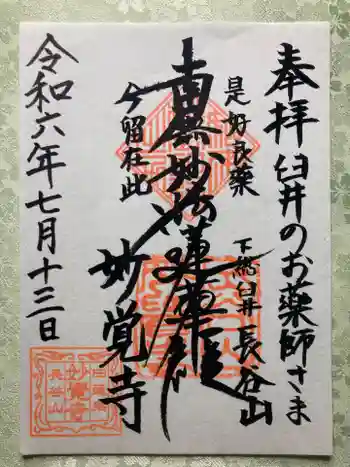 奉拝 臼井のお薬師さま
是好良薬
下総臼井 長谷山
南無妙法蓮華経
今留在此
妙覚寺
令和六年七月十三日